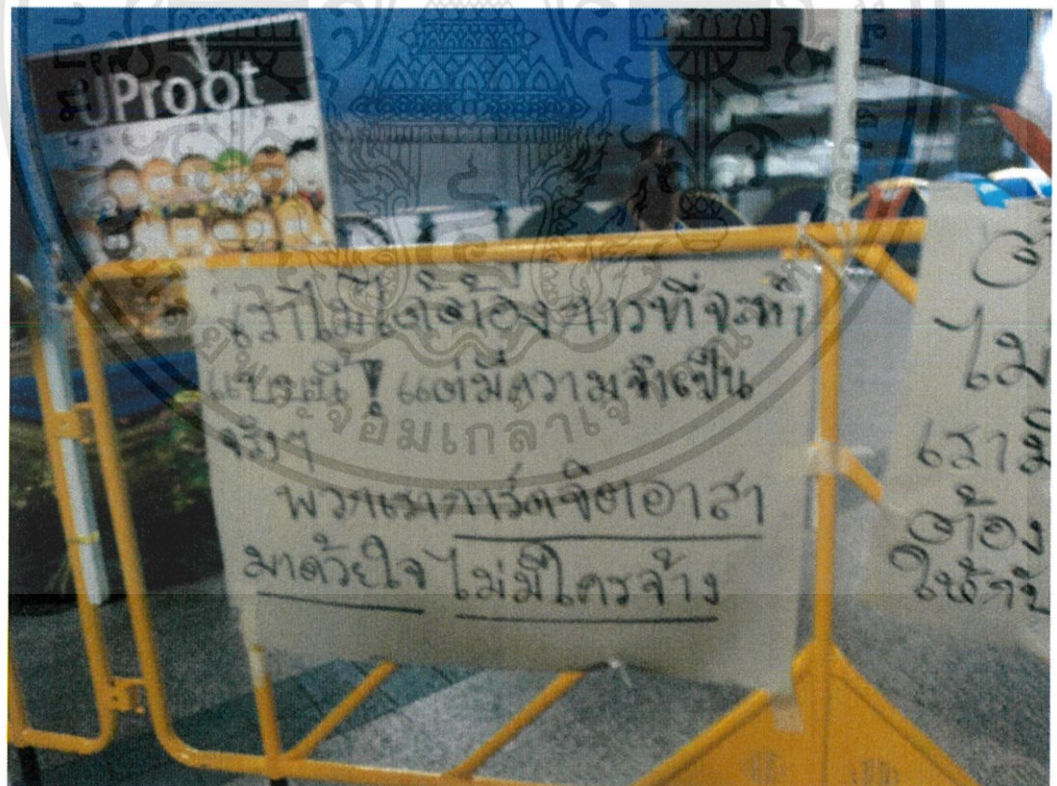 UProot
เราไม่ได้ต้องการที่จะทำ
แบบนี้ แต่มีความจำเป็น
จริงๆ
พวกเราการ์ดจิตอาสา
มาด้วยใจ ไม่มีใครจ้าง
ไม่
เรา
ต้อง